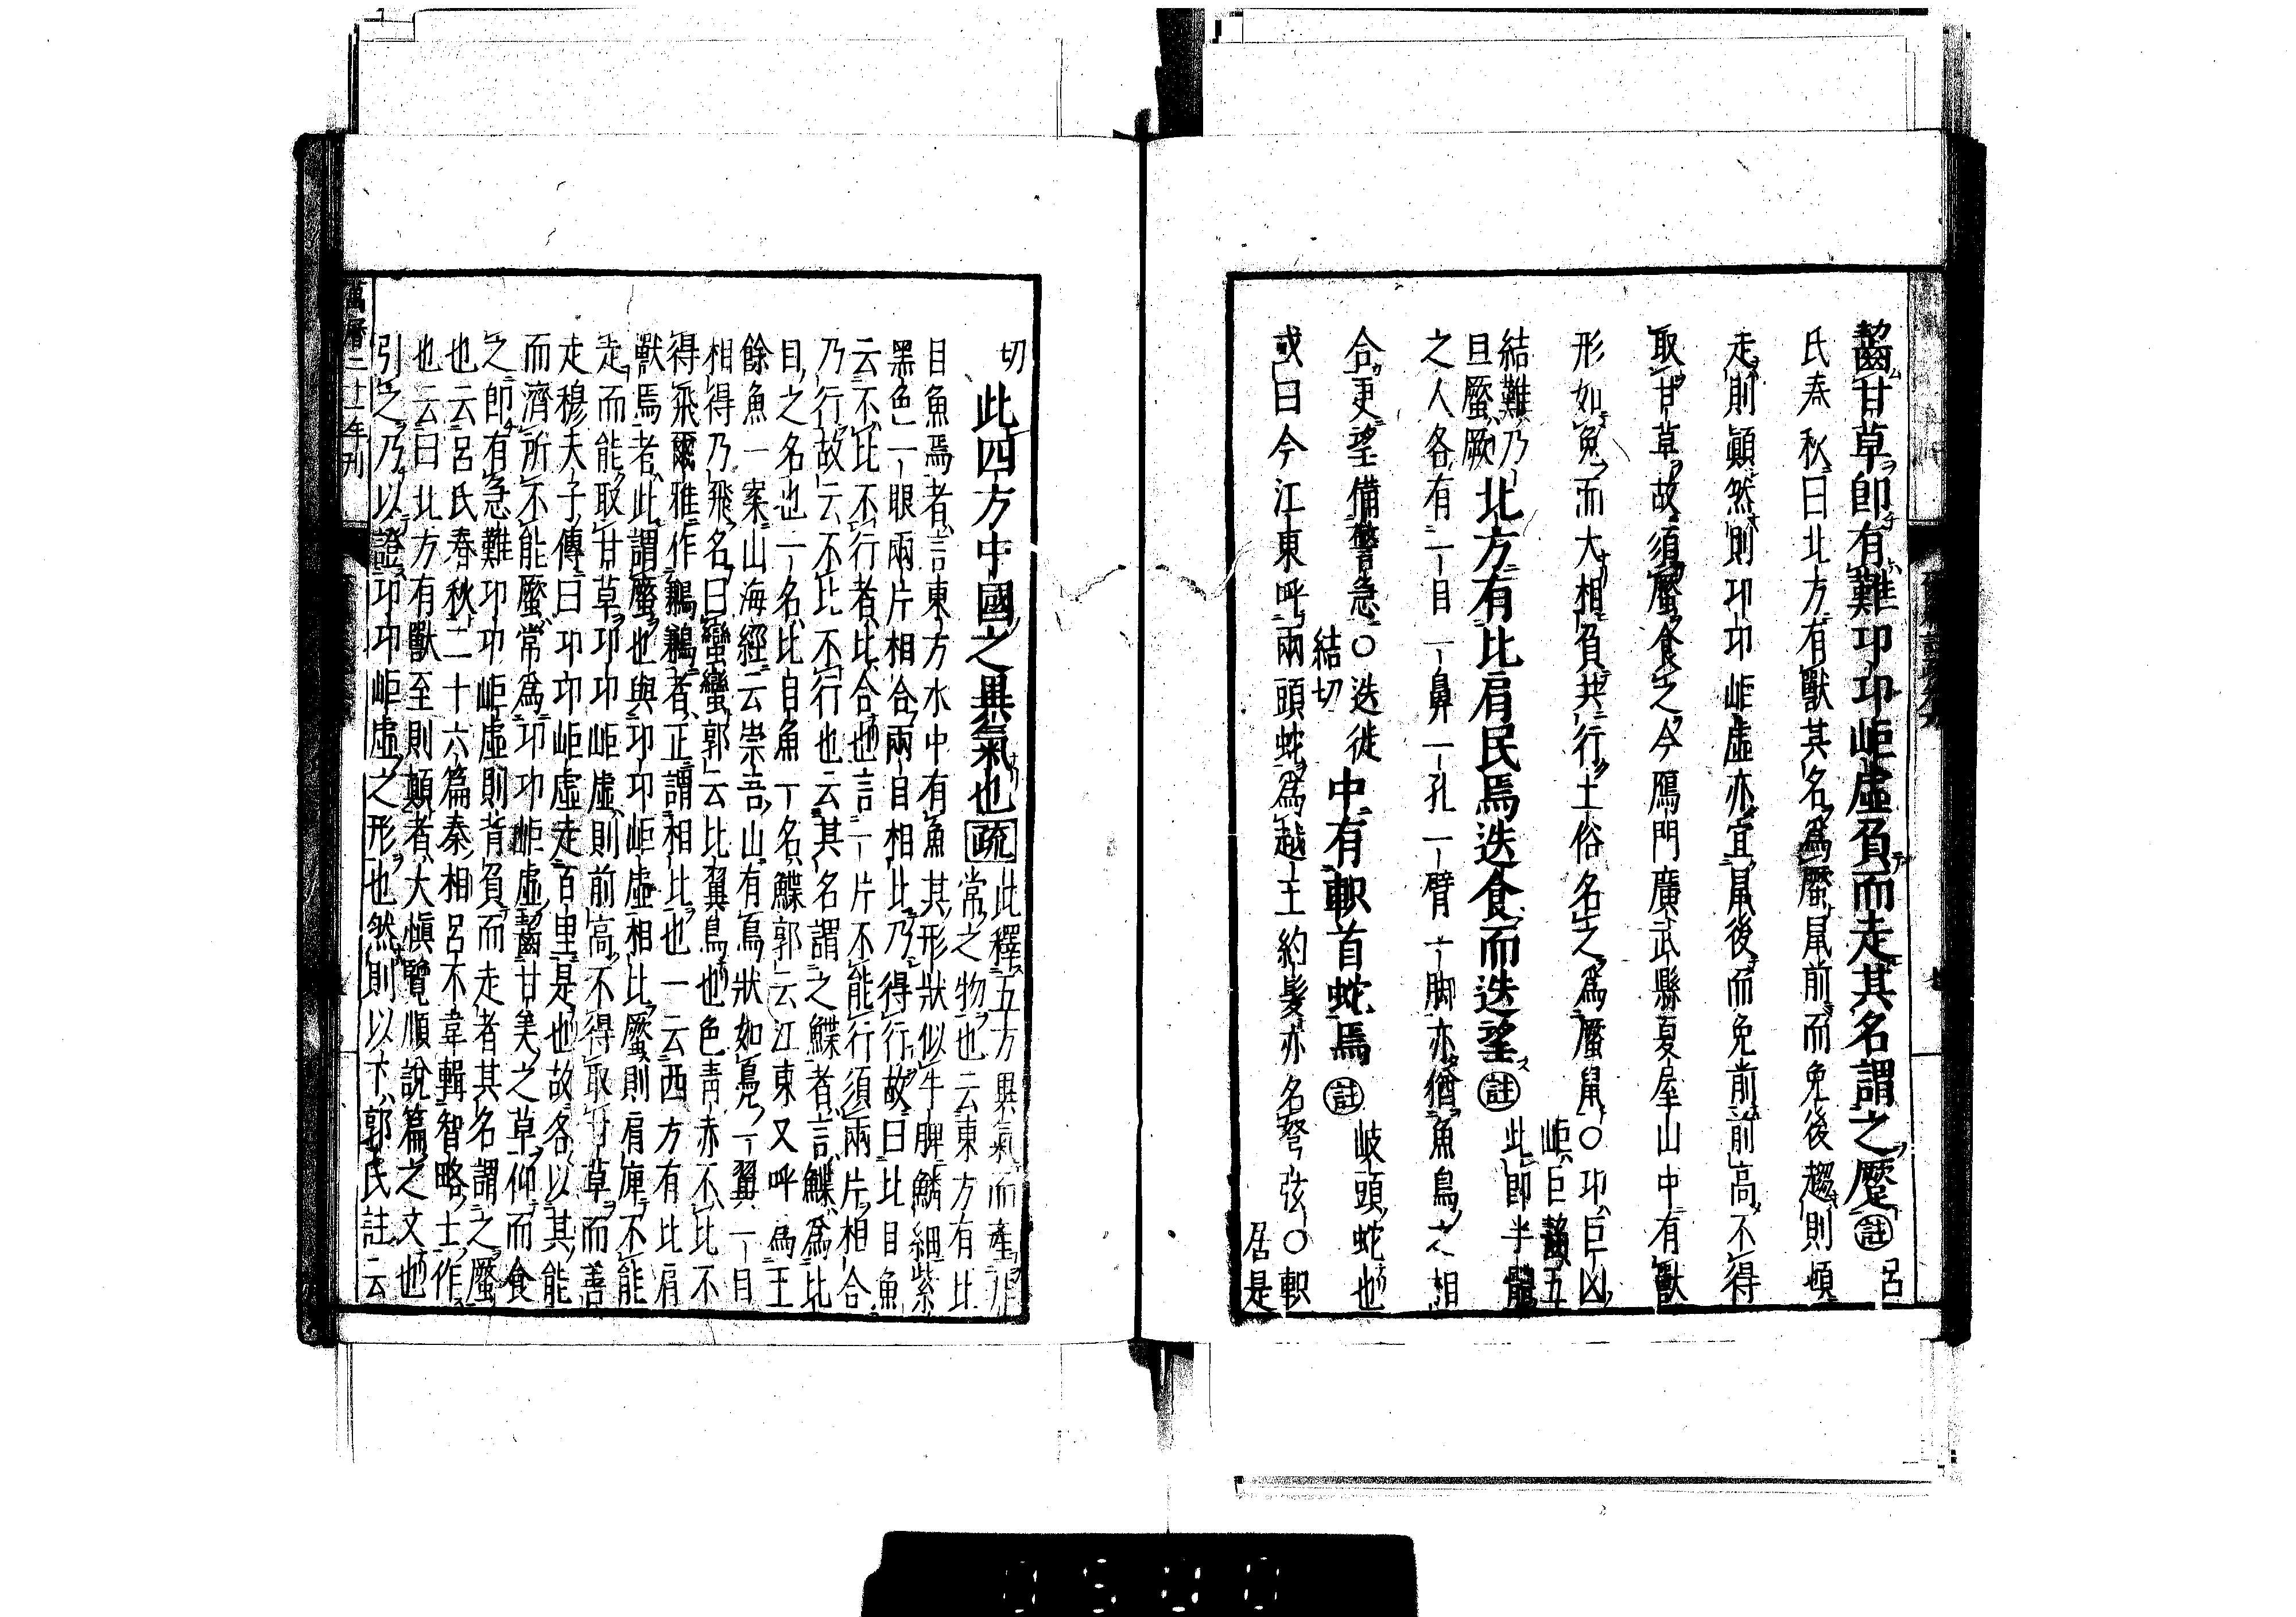 齧甘草即有難卭卭岠虛負而走其名謂之蟨註呂
氏春秋曰北方有獸其名爲蟨鼠前而兔後趨則頓
走則顚然則卭卭岠虛亦宜鼠後而兔前前高不得
取甘草故須蟨食之今鴈門廣武縣夏屋山中有獸
形如兔而大相負共行土俗名之爲蟨鼠○卭巨凶
岠巨齧五
結難乃
旦蟨厥
北方有比肩民焉迭食而迭望註此即半體
之人各有一目一鼻一孔一臂一脚亦猶魚鳥之相
合更望備警急○迭徒
結切
中有軹首蛇焉註岐頭蛇也
或曰今江東呼兩頭蛇爲越王約髮亦名弩弦○軹
居是
切
此四方中國之異氣也疏
此釋五方異氣而產非
常之物也云東方有比
目魚焉者言東方水中有魚其形狀似牛脾鱗細紫
黑色一眼兩片相合兩目相比乃得行故曰比目魚
云不比不行者比合也言一片不能行須兩片相合
乃行故云不比不行也云其名謂之鰈者言鰈爲比
目之名也一名比目魚一名鰈郭云江東又呼爲王
餘魚一案山海經云崇吾山有鳥狀如鳧一翼一目
相得乃飛名曰蠻蠻郭云比翼鳥也色靑赤不比不
得飛爾雅作鶼鶼者正謂相比也一云西方有比肩
獸焉者此謂蟨也與卭卭岠虛相比蟨則肩庳不能
走而能取甘草卭卭岠虛則前高不得取甘草而善
走穆天子傳曰卭卭岠虛走百里是也故各以其能
而濟所不能蟨常爲卭卭岠虛齧甘美之草仰而食
之即有急難卭卭岠虛則背負而走者其名謂之蟨
也云呂氏春秋二十六篇秦相呂不韋輯智略士作
也云曰北方有獸至則顚者大愼覽順說篇之文也
引之乃以證卭卭岠虛之形也然則以下郭氏註云
萬曆二十一年刋